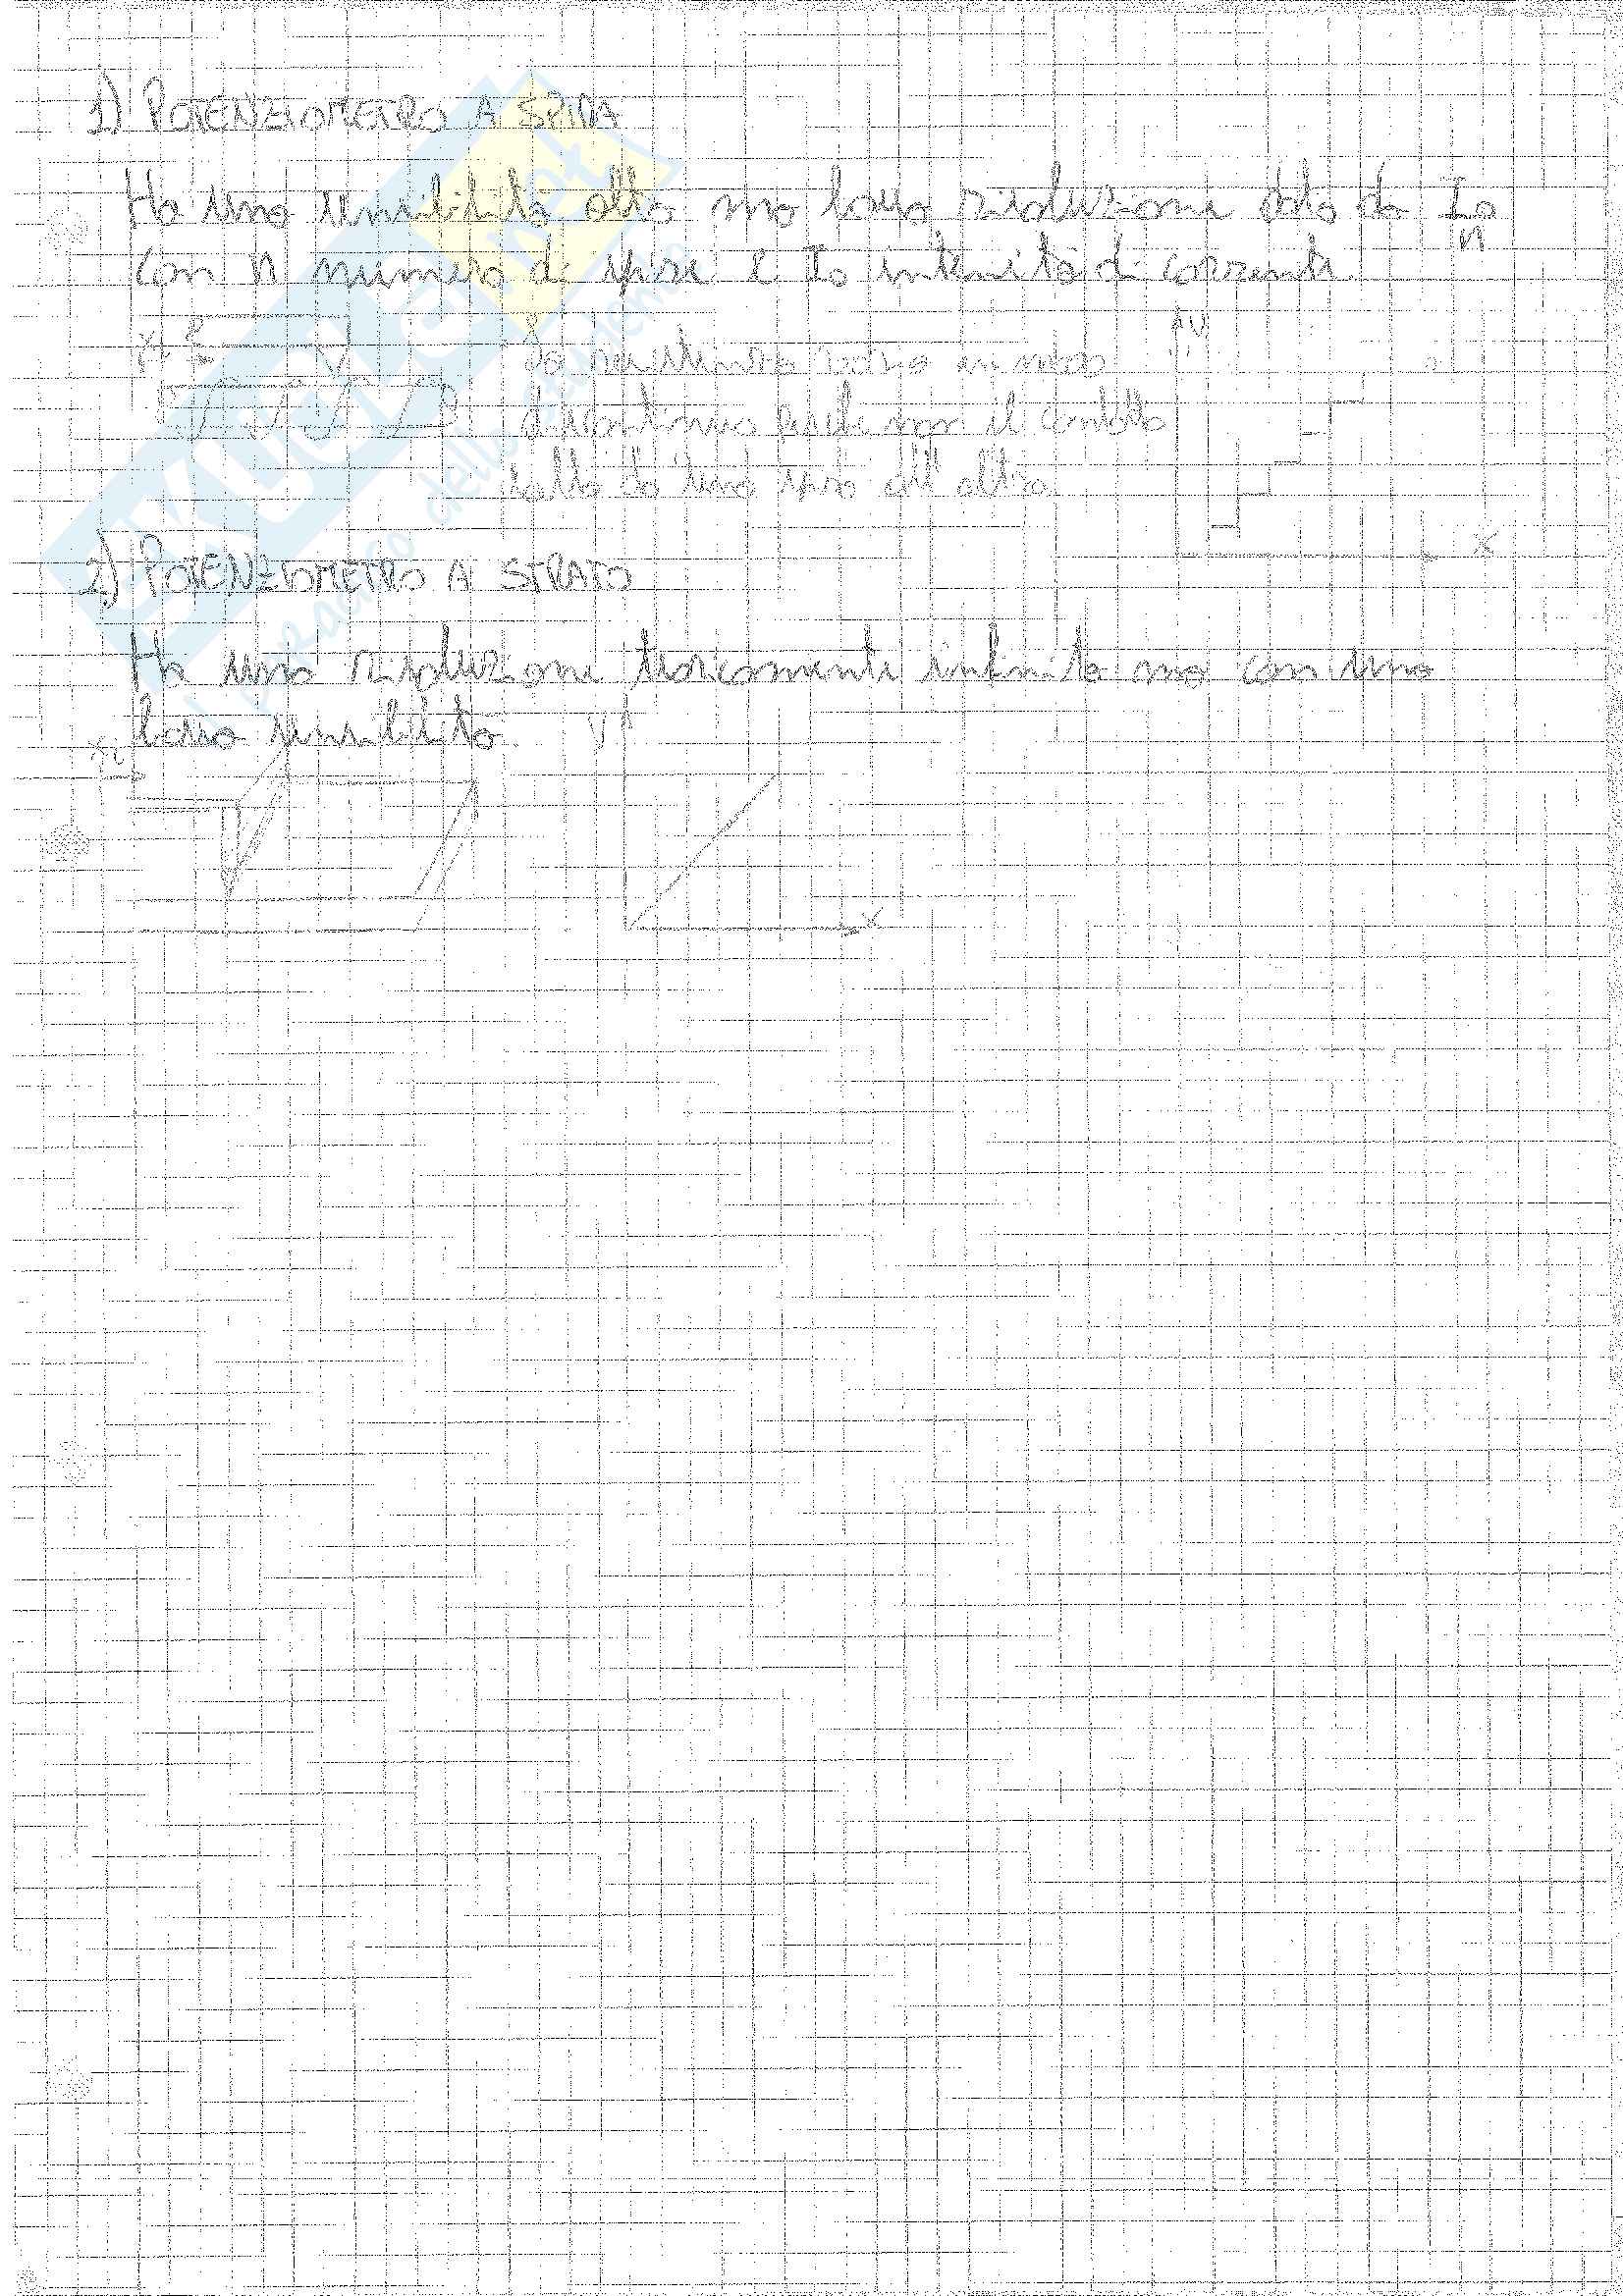 1) POTENZIOMETRO A SPIRA
Ha una sensibilità alta ma bassa risoluzione data da I₀/n
con n numero di spire e I₀ intensità di corrente.
La resistenza varia in modo
discontinuo perché non il contatto
salta da una spira all'altra.
V
x
2) POTENZIOMETRO A STRATO
Ha una risoluzione teoricamente infinita ma con una
bassa sensibilità.
xi
V
x